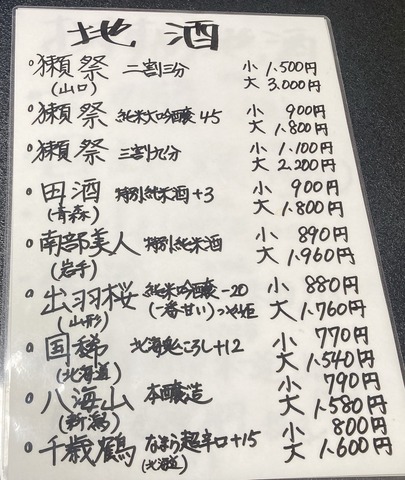 地酒
獺祭 二割三分 小 1.500円
(山口) 大 3.000円
獺祭 純米大吟醸 45 小 900円
大 1.800円
獺祭 三割九分 小 1.100円
大 2,200円
田酒 特別純米酒+3 小 900円
(青森) 大 1.800円
南部美人 特別純米酒 小 890円
(岩手) 大 1,960円
出羽桜 純米吟醸-20 小 880円
(山形) (一番甘い)つや姫 大 1.760円
国稀 北海鬼ころし+12 小 770円
(北海道) 大 1.540円
八海山 本醸造 小 790円
(新潟) 大 1.580円
千歳鶴 なまら超辛口+15 小 800円
(北海道) 大 1.600円